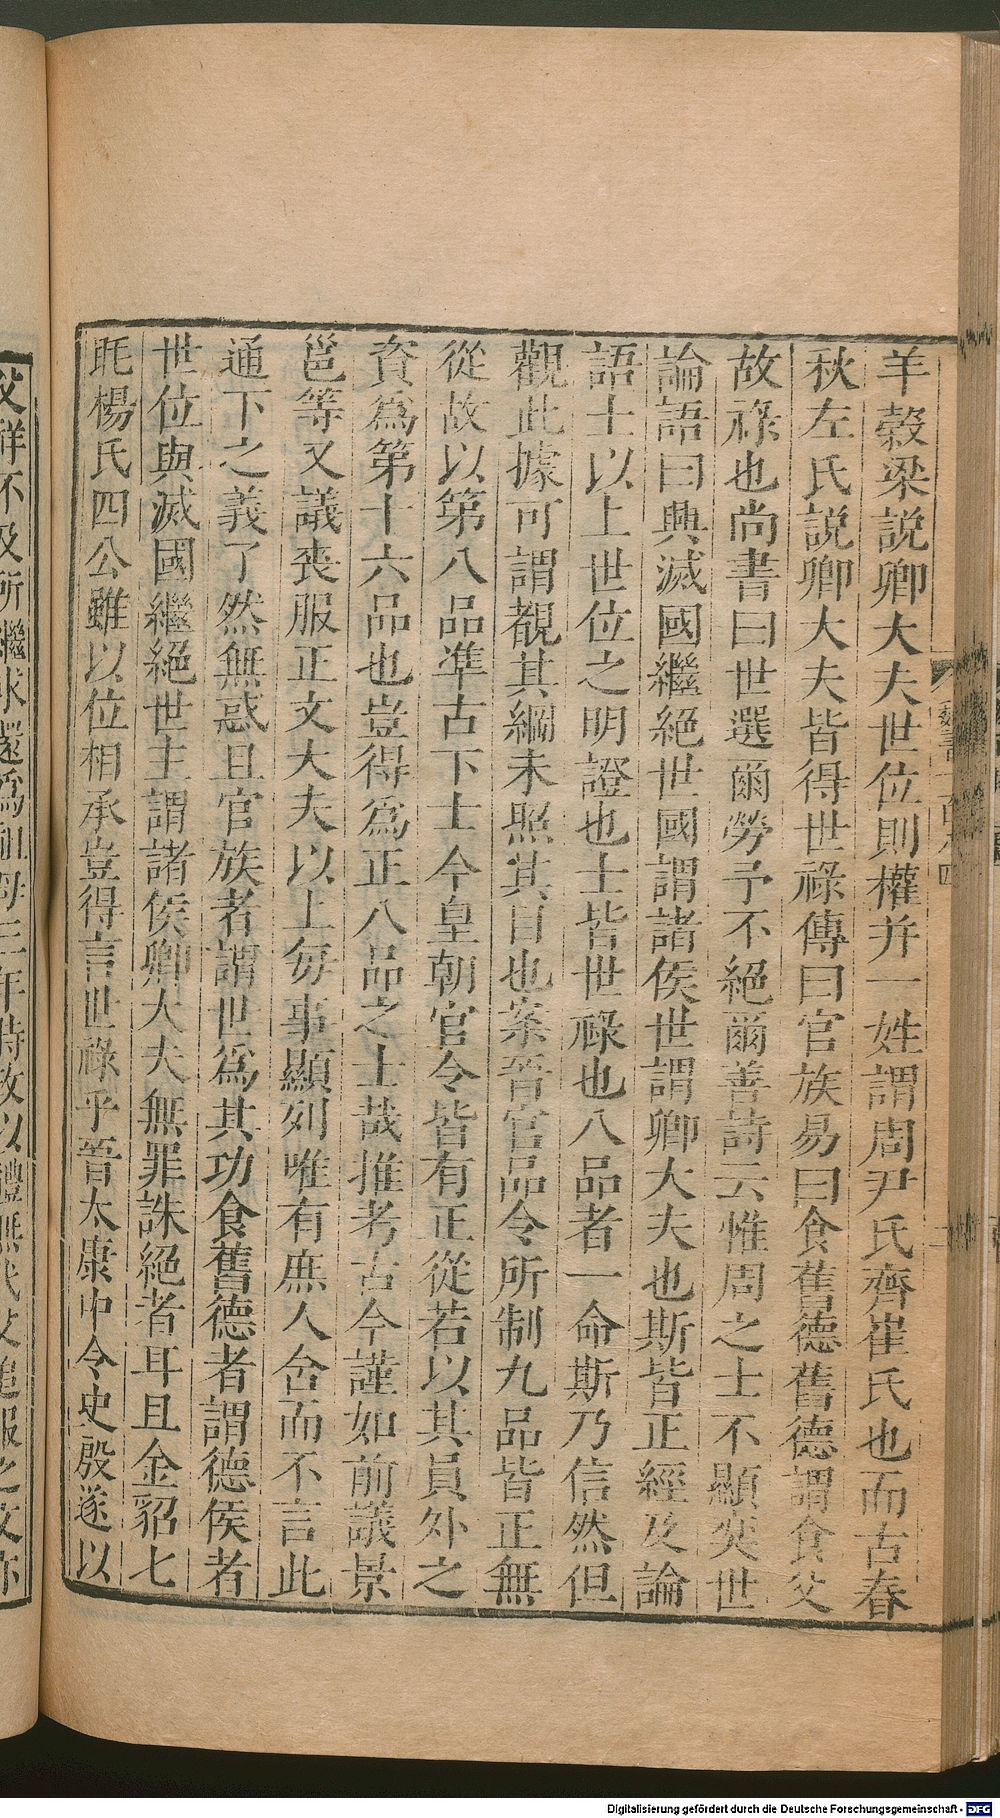 羊穀梁説卿大夫世位則權并一姓謂周尹氏齊崔氏也而古春
秋左氏説卿大夫皆得世祿傳曰官族易曰食舊德舊德謂食父
故祿也尚書曰世選爾勞予不絕爾善詩云惟周之士不顯奕世
論語曰興滅國繼絕世國謂諸侯世謂卿大夫也斯皆正經及論
語士以上世位之明證也士皆世祿也八品者一命斯乃信然但
觀此據可謂覩其綱未照其目也案晉官品令所制九品皆正無
從故以第八品準古下士今皇朝官令皆有正從若以其員外之
資爲第十六品也豈得爲正八品之士哉推考古今謹如前議景
邕等又議喪服正文大夫以上每事顯列唯有庶人含而不言此
通下之義了然無惑且官族者謂世爲其功食舊德者謂德侯者
世位與滅國繼絕世主謂諸侯卿大夫無罪誅絕者耳且金貂七
毦楊氏四公雖以位相承豈得言世祿乎晉太康中令史殷遂以
父祥不及所繼求還爲祖母三年時政以禮無代父追服之文亦
Digitalisierung gefördert durch die Deutsche Forschungsgemeinschaft - DFG